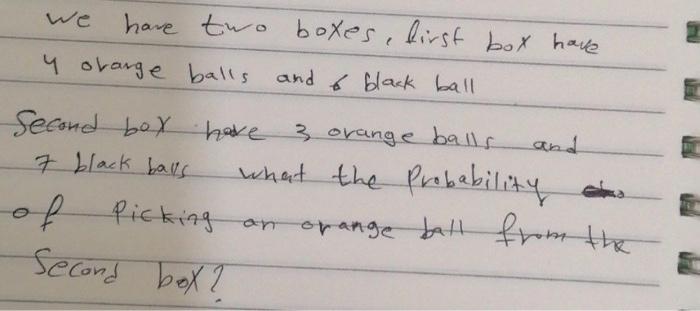 we have two boxes, first box have
4 orange balls and 6 black ball
Second box have 3 orange balls and
7 black balls what the Probability
of Picking an orange ball from the
Second box?